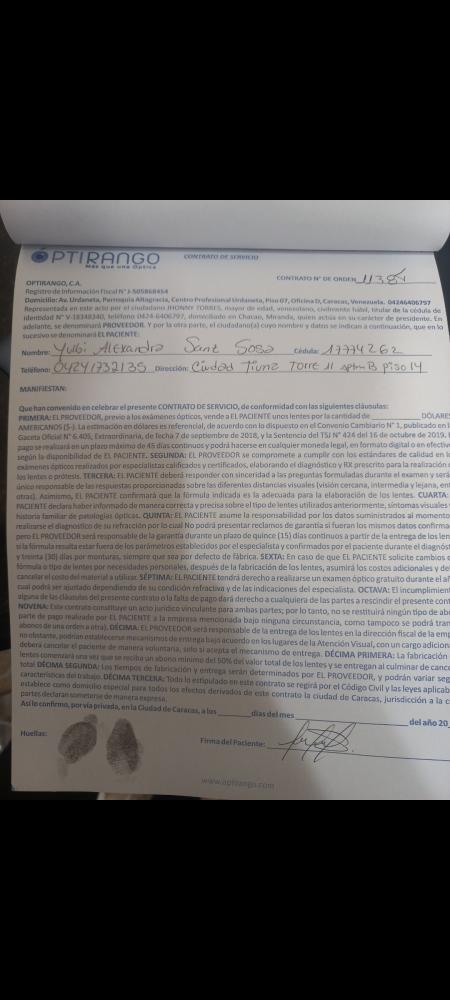 ÓPTIRANGO
Más que una Óptica
CONTRATO DE SERVICIO
CONTRATO N° DE ORDEN 11384
OPTIRANGO, C.A.
Registro de Información Fiscal N° J-505868454
Domicilio: Av. Urdaneta, Parroquia Altagracia, Centro Profesional Urdaneta, Piso 07, Oficina D, Caracas, Venezuela. 04246406797
Representada en este acto por el ciudadano JHONNY TORRES, mayor de edad, venezolano, civilmente hábil, titular de la cédula de
identidad N° V-18348240, teléfono 0424-6406797, domiciliado en Chacao, Miranda, quien actúa en su carácter de presidente. En
adelante, se denominará PROVEEDOR. Y por la otra parte, el ciudadano(a) cuyo nombre y datos se indican a continuación, que en lo
sucesivo se denominará EL PACIENTE:
Nombre: Yubi Alexandra Sanz Sosa Cédula: 17774262
Teléfono: 04241732135 Dirección: Ciudad Tiuna Torre 11 aptm B piso 14
MANIFIESTAN:
Que han convenido en celebrar el presente CONTRATO DE SERVICIO, de conformidad con las siguientes cláusulas:
PRIMERA: EL PROVEEDOR, previo a los exámenes ópticos, vende a EL PACIENTE unos lentes por la cantidad de DÓLARES
AMERICANOS ($-). La estimación en dólares es referencial, de acuerdo con lo dispuesto en el Convenio Cambiario N° 1, publicado en l
Gaceta Oficial N° 6.405, Extraordinaria, de fecha 7 de septiembre de 2018, y la Sentencia del TSJ N° 424 del 16 de octubre de 2019.
pago se realizará en un plazo máximo de 45 días continuos y podrá hacerse en cualquier moneda legal, en formato digital o en efectiv
según la disponibilidad de EL PACIENTE. SEGUNDA: EL PROVEEDOR se compromete a cumplir con los estándares de calidad en l
exámenes ópticos realizados por especialistas calificados y certificados, elaborando el diagnóstico y RX prescrito para la realización
los lentes o prótesis. TERCERA: EL PACIENTE deberá responder con sinceridad a las preguntas formuladas durante el examen y será
único responsable de las respuestas proporcionadas sobre las diferentes distancias visuales (visión cercana, intermedia y lejana, ent
otras). Asimismo, EL PACIENTE confirmará que la fórmula indicada es la adecuada para la elaboración de los lentes. CUARTA:
PACIENTE declara haber informado de manera correcta y precisa sobre el tipo de lentes utilizados anteriormente, síntomas visuales
historia familiar de patologías ópticas. QUINTA: EL PACIENTE asume la responsabilidad por los datos suministrados al momento
realizarse el diagnostico de su refracción por lo cual No podrá presentar reclamos de garantía si fueron los mismos datos confirma
pero EL PROVEEDOR será responsable de la garantía durante un plazo de quince (15) días continuos a partir de la entrega de los len
si la fórmula resulta estar fuera de los parámetros establecidos por el especialista y confirmados por el paciente durante el diagnóst
y treinta (30) días por monturas, siempre que sea por defecto de fábrica. SEXTA: En caso de que EL PACIENTE solicite cambios
fórmula o tipo de lentes por necesidades personales, después de la fabricación de los lentes, asumirá los costos adicionales y de
cancelar el costo del material a utilizar. SÉPTIMA: EL PACIENTE tendrá derecho a realizarse un examen óptico gratuito durante el a
cual podrá ser ajustado dependiendo de su condición refractiva y de las indicaciones del especialista. OCTAVA: El incumplimient
alguna de las cláusulas del presente contrato o la falta de pago dará derecho a cualquiera de las partes a rescindir el presente cont
NOVENA: Este contrato constituye un acto jurídico vinculante para ambas partes; por lo tanto, no se restituirá ningún tipo de ab
parte de pago realizado por EL PACIENTE a la empresa mencionada bajo ninguna circunstancia, como tampoco se podrá tran
abonos de una orden a otra). DÉCIMA: EL PROVEEDOR será responsable de la entrega de los lentes en la dirección fiscal de la emp
no obstante, podrían establecerse mecanismos de entrega bajo acuerdo en los lugares de la Atención Visual, con un cargo adicion
deberá cancelar el paciente de manera voluntaria, solo si acepta el mecanismo de entrega. DÉCIMA PRIMERA: La fabricación
lentes comenzará una vez que se reciba un abono mínimo del 50% del valor total de los lentes y se entregan al culminar de canc
total DÉCIMA SEGUNDA: Los tiempos de fabricación y entrega serán determinados por EL PROVEEDOR, y podrán variar seg
características del trabajo. DÉCIMA TERCERA: Todo lo estipulado en este contrato se regirá por el Código Civil y las leyes aplicab
establece como domicilio especial para todos los efectos derivados de este contrato la ciudad de Caracas, jurisdicción a la c
partes declaran someterse de manera expresa.
Así lo confirmo, por vía privada, en la Ciudad de Caracas, a los días del mes del año 20
Huellas:
Firma del Paciente:
www.optirango.com